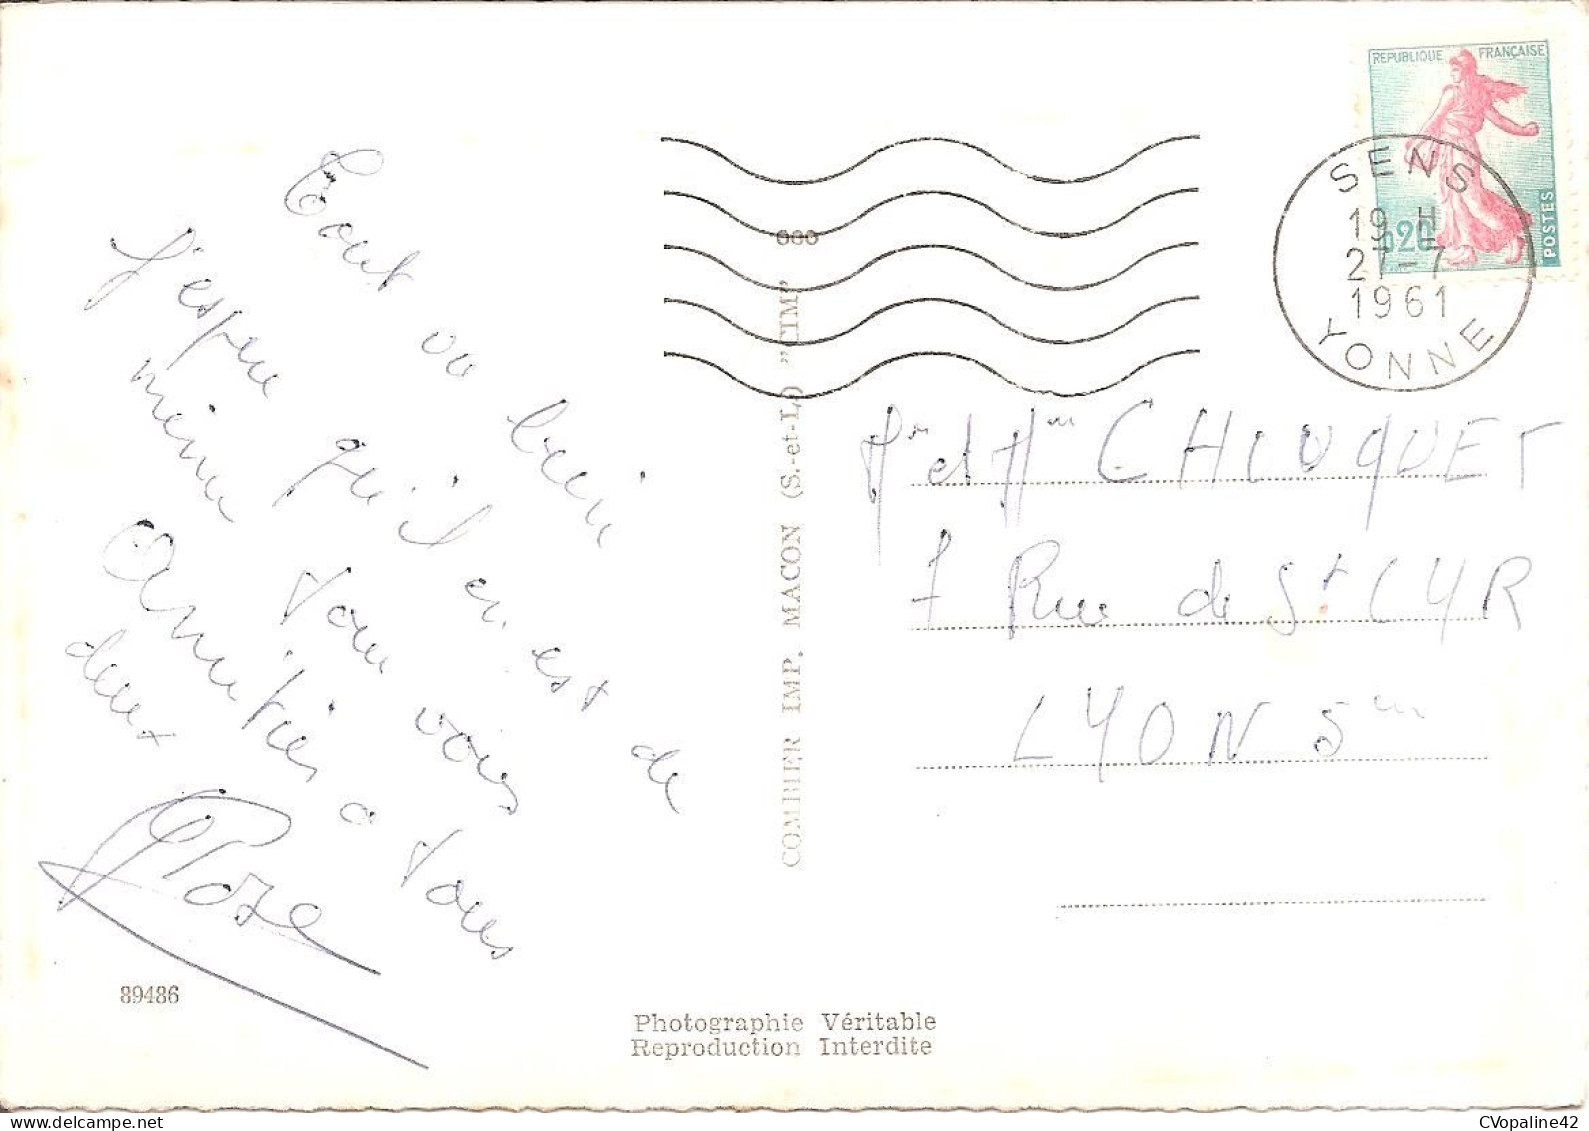 Tout va bien
J'espère qu'il en est de
même pour vous
Amitiés a tous
deux
Rose
89486
COMBIER IMP. MACON (S.-et-L.) "CIM"
Photographie Véritable
Reproduction Interdite
REPUBLIQUE FRANÇAISE
0,20
POSTES
SENS
19 H
27-7
1961
YONNE
Mr et Mme CHOUQUET
7 Rue de St CYR
LYON 5me
CVopaline42